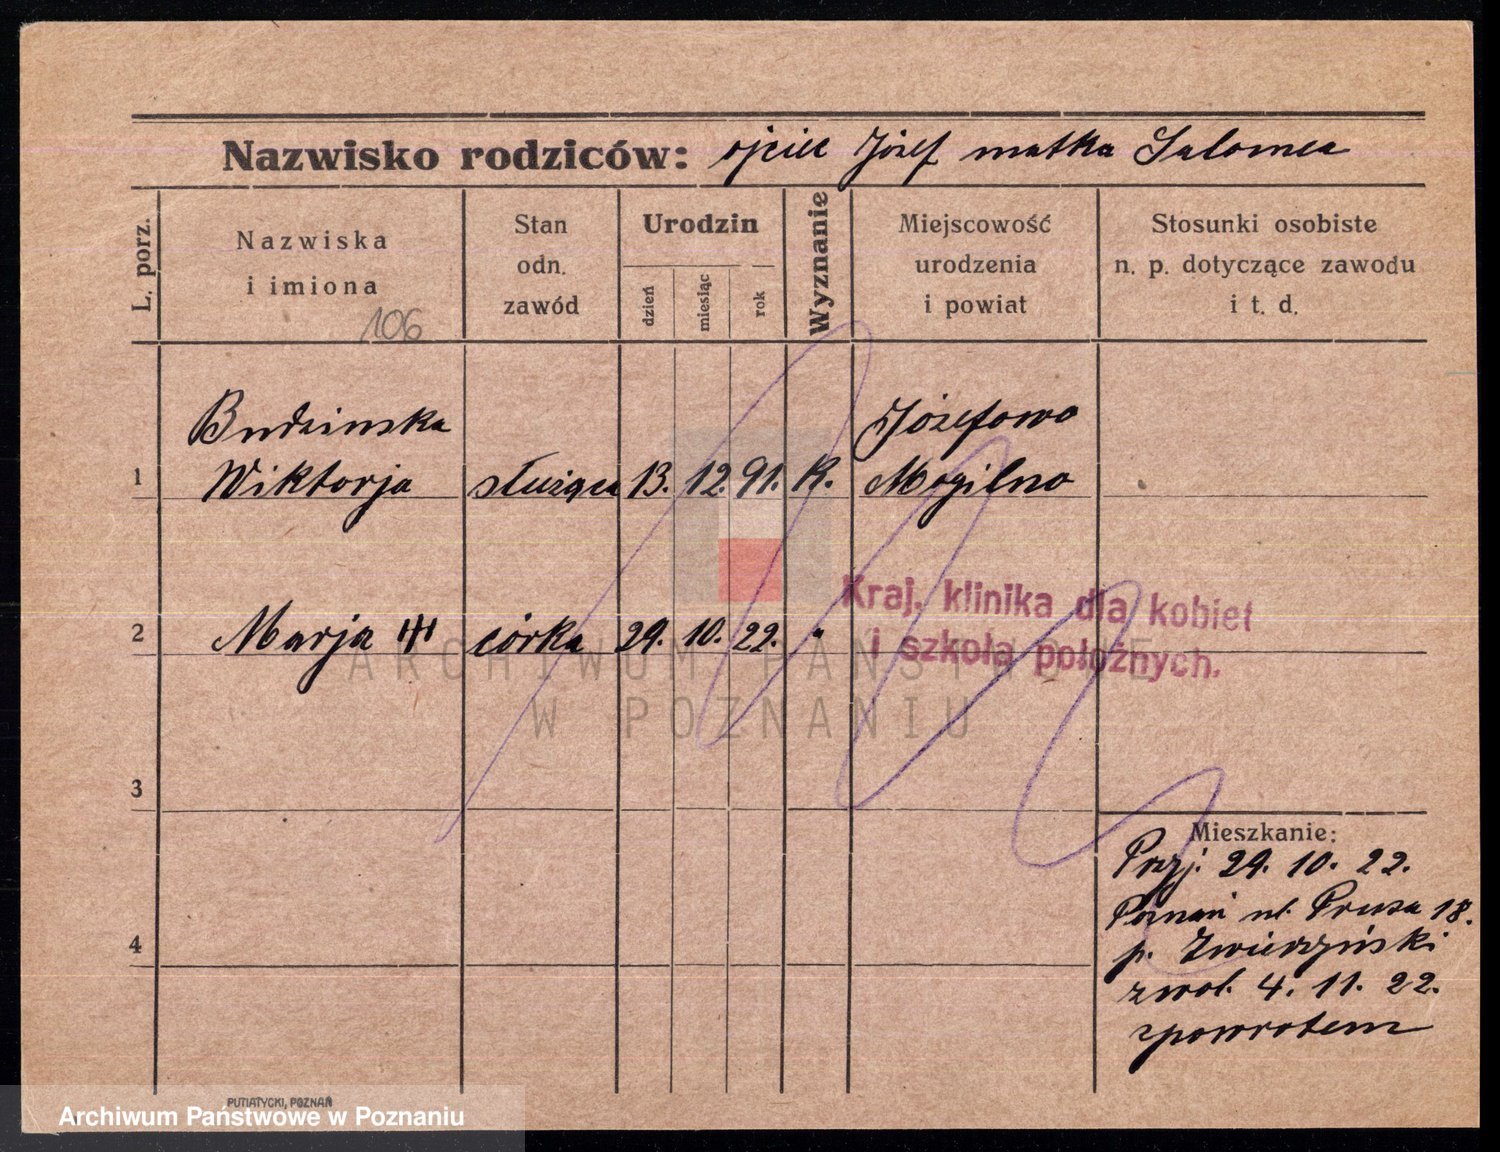 Nazwisko rodziców: ojciec Józef matka Salomea
L. porz.
Nazwiska
i imiona
106
Stan
odn.
zawód
Urodzin
dzień
miesiąc
rok
Wyznanie
Miejscowość
urodzenia
i powiat
Stosunki osobiste
n. p. dotyczące zawodu
i t. d.
Budzinska Józefowo
1 Wiktorja służąca 13. 12. 91. K. Mogilno
Kraj. klinika dla kobiet
i szkoła położnych.
2 Marja córka 29. 10. 22. "
ARCHIWUM PAŃSTWOWE
W POZNANIU
3
Mieszkanie:
Przj. 29. 10. 22.
Poznań ul. Prusa 18.
4
p. Zwierzyński
zwol. 4. 11. 22.
zpowrotem
PUTIATYCKI, POZNAŃ
Archiwum Państwowe w Poznaniu